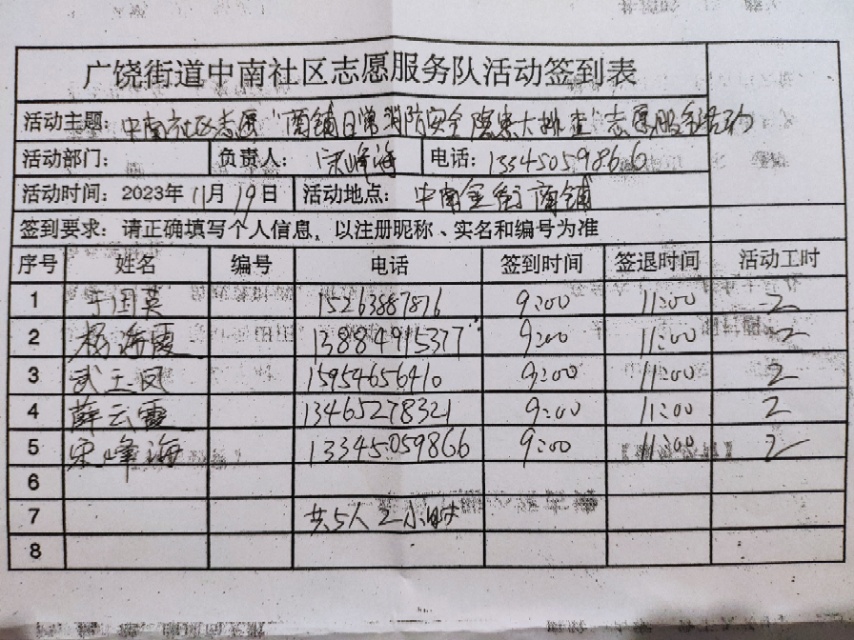 广饶街道中南社区志愿服务队活动签到表
活动主题：中南社区志愿"商铺日常消防安全隐患大排查"志愿服务活动
活动部门： 负责人：宋峰海 电话：13345059866
活动时间：2023年11月19日 活动地点：中南金街商铺
签到要求：请正确填写个人信息，以注册昵称、实名和编号为准
序号 姓名 编号 电话 签到时间 签退时间 活动工时
1 于国英 15263887876 9:00 11:00 2
2 杨海霞 13884915377 9:00 11:00 2
3 武玉凤 15954656410 9:00 11:00 2
4 薛云霞 13465278321 9:00 11:00 2
5 宋峰海 13345059866 9:00 11:00 2
6
7 共5人 2小时
8